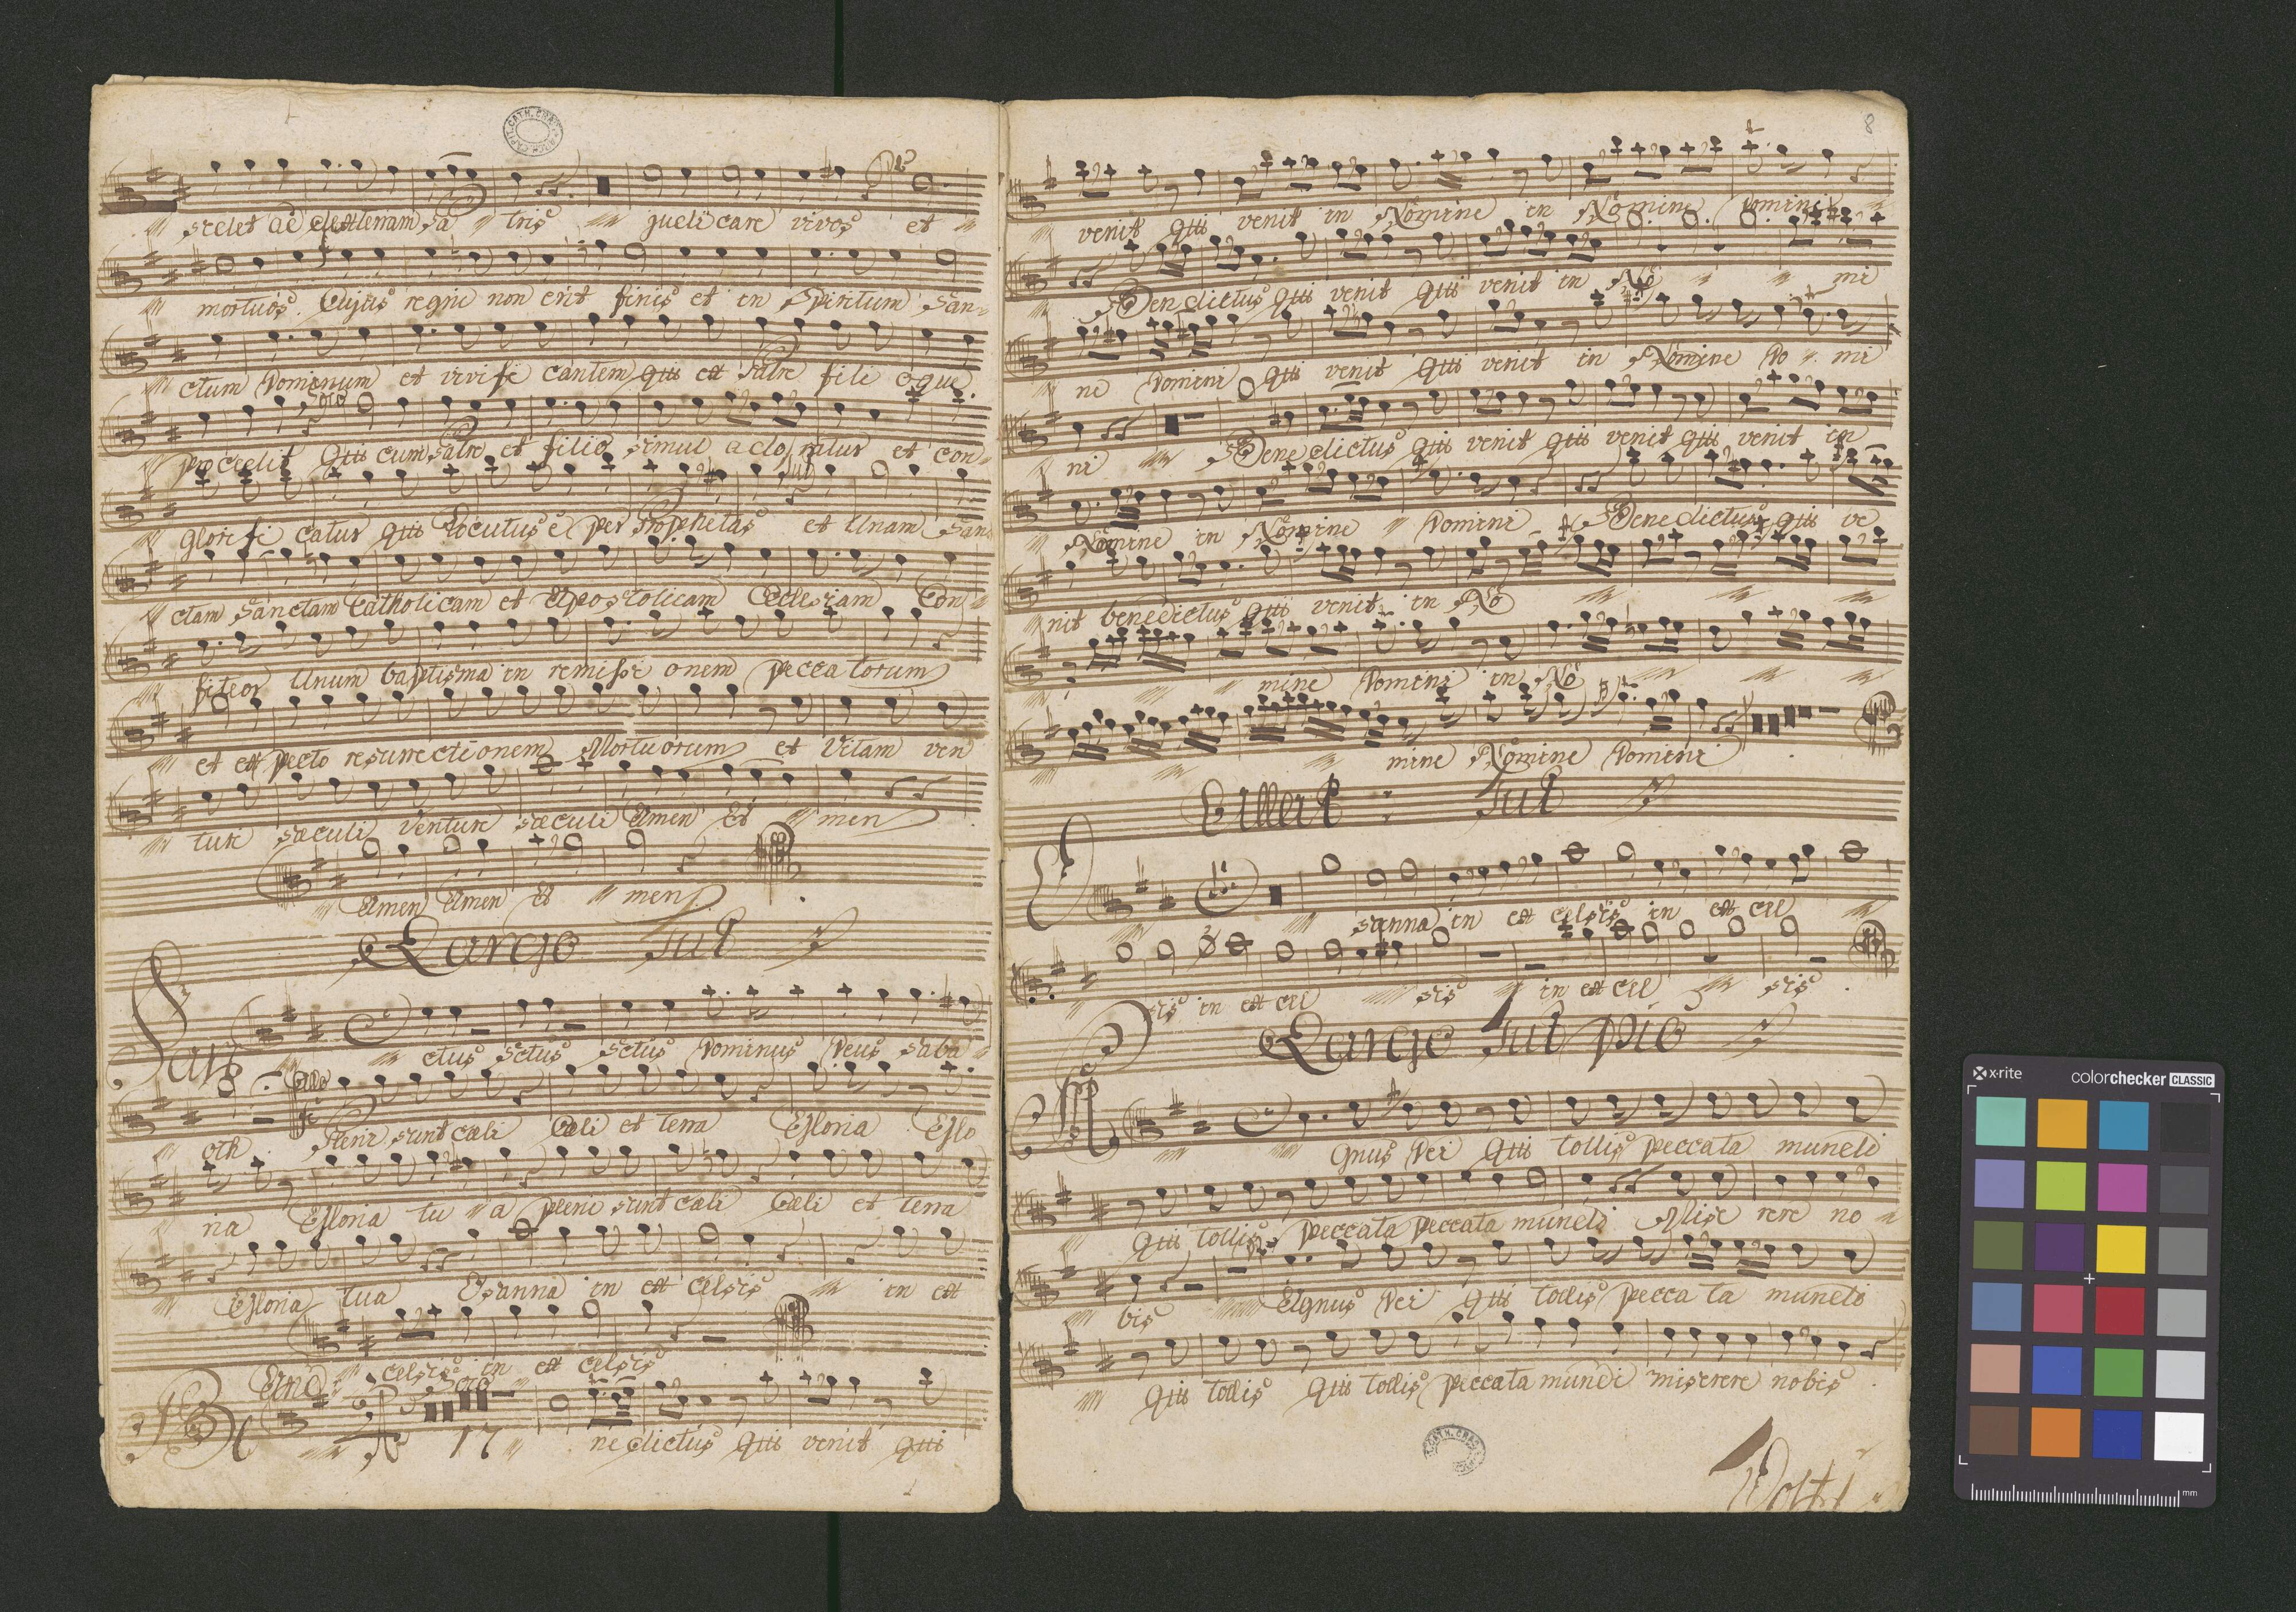 scelet ad dextteram Pa tris judicare vivos et
mortuos. Cujus regni non erit finis et in Spiritum San=
ctum Dominum et vivifi cantem qui ex Patre filioque
procedit qui cum Patre et filio simul ado ratur et con
glorifi catur qui Locutus e per Prophetas et Unam San
ctam Sanctam Catholicam et Apostolicam Ecclesiam Con
fiteor Unum baptisma in remissi onem pecca torum
et ex pecto resurrectionem Mortuorum et Vitam ven
turi sæculi venturi sæculi Amen A men
Amen Amen A men
Largo Tut
San ctus Sctus Sctus Dominus Deus Saba
oth Pleni sunt cæli Cæli et terra Gloria Glo
ria Gloria tu a pleni sunt cæli Cæli et terra
Gloria tua Osanna in ex celsis in ex
celsis in ex celsis
And Solo
Be 17 nedictus qui venit qui
8
venit qui venit in Nomine in Nomine Domini
Benedictus qui venit qui venit in No mi
ne Domini qui venit qui venit in Nomine Do mi
ni Benedictus qui venit qui venit qui venit in
Nomine in Nomine Domini Benedictus qui ve
nit benedictus qui venit in No
mine Domini in No
mine Nomine Domini
Tut
O sanna in ex celsis in ex cel
sis in ex cel sis in ex cel sis
Largo Tut Pio
A gnus Dei qui tollis peccata mundi
qui tollis peccata peccata mundi Mise rere no
bis Agnus Dei qui tollis pecca ta mundi
qui tollis qui tollis peccata mundi miserere nobis
Volti
x-rite colorchecker CLASSIC
mm